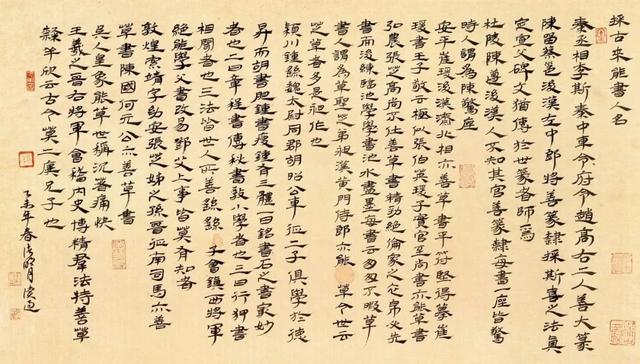 採古來能書人名
秦丞相李斯秦中車令府令趙高右二人善大篆
陳留蔡邕後漢左中郎將善篆隸採斯喜之法真
定宣父碑文猶傳於世篆者師焉
杜陵陳遵後漢人不知其官善篆隸每書一座皆驚
時人謂為陳驚座
安平崔瑗後漢濟北相亦善草書平符堅得摹崔
瑗書王子敬云極似張伯英瑗子寔官至尚書亦能草書
弘農張芝高尚不仕善草書精勁絕倫家之衣帛必先
書而後練臨池學學書池水盡墨每書云匆匆不暇草
書人謂為草聖芝弟昶漢黃門侍郎亦能草今世云
芝草者多是昶作也
潁川鍾繇魏太尉同郡胡昭公車徵二子俱學於德
昇而胡書肥鍾書瘦鍾有三體一曰銘書石之書最妙
者也二曰章程書傳秘書教小學者也三曰行狎書
相聞者也三法皆世人所善繇子會鎮西將軍
絕能學父書改易鄧艾上事皆莫有知者
敦煌索靖字幼安張芝姊之孫晉征南司馬亦善
草書陳國何元公亦善草書
吳人皇象能草世稱沉著痛快
王羲之晉右將軍會稽內史博精群法特善草
隸羊欣云古今莫二廙兄子也
乙未年春